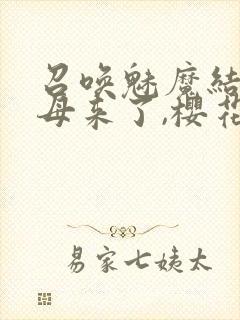 召唤魅魔结
母来了,樱花
易家七姨太